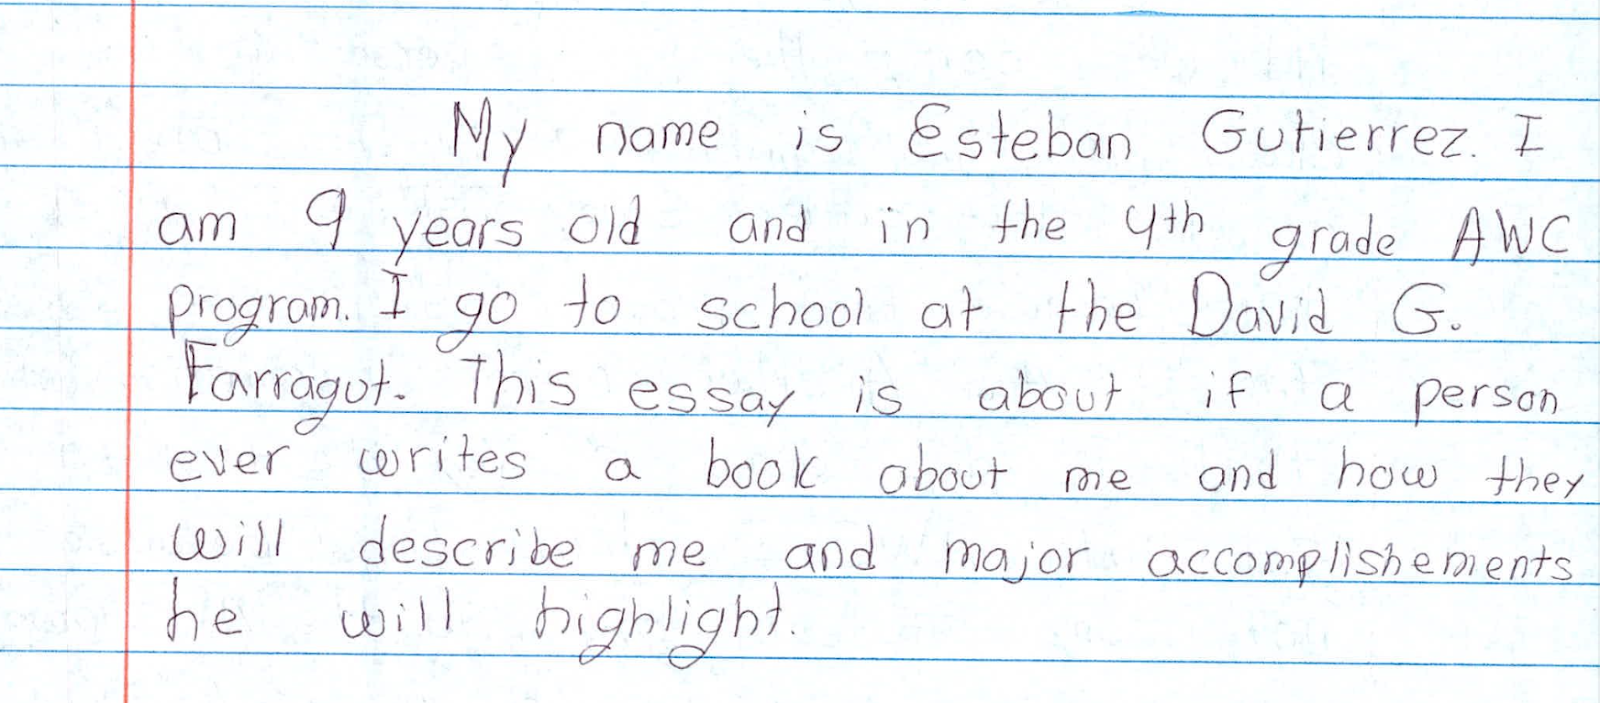 My name is Esteban Gutierrez. I
am 9 years old and in the 4th grade AWC
program. I go to school at the David G.
Farragut. This essay is about if a person
ever writes a book about me and how they
will describe me and major accomplishements
he will highlight.